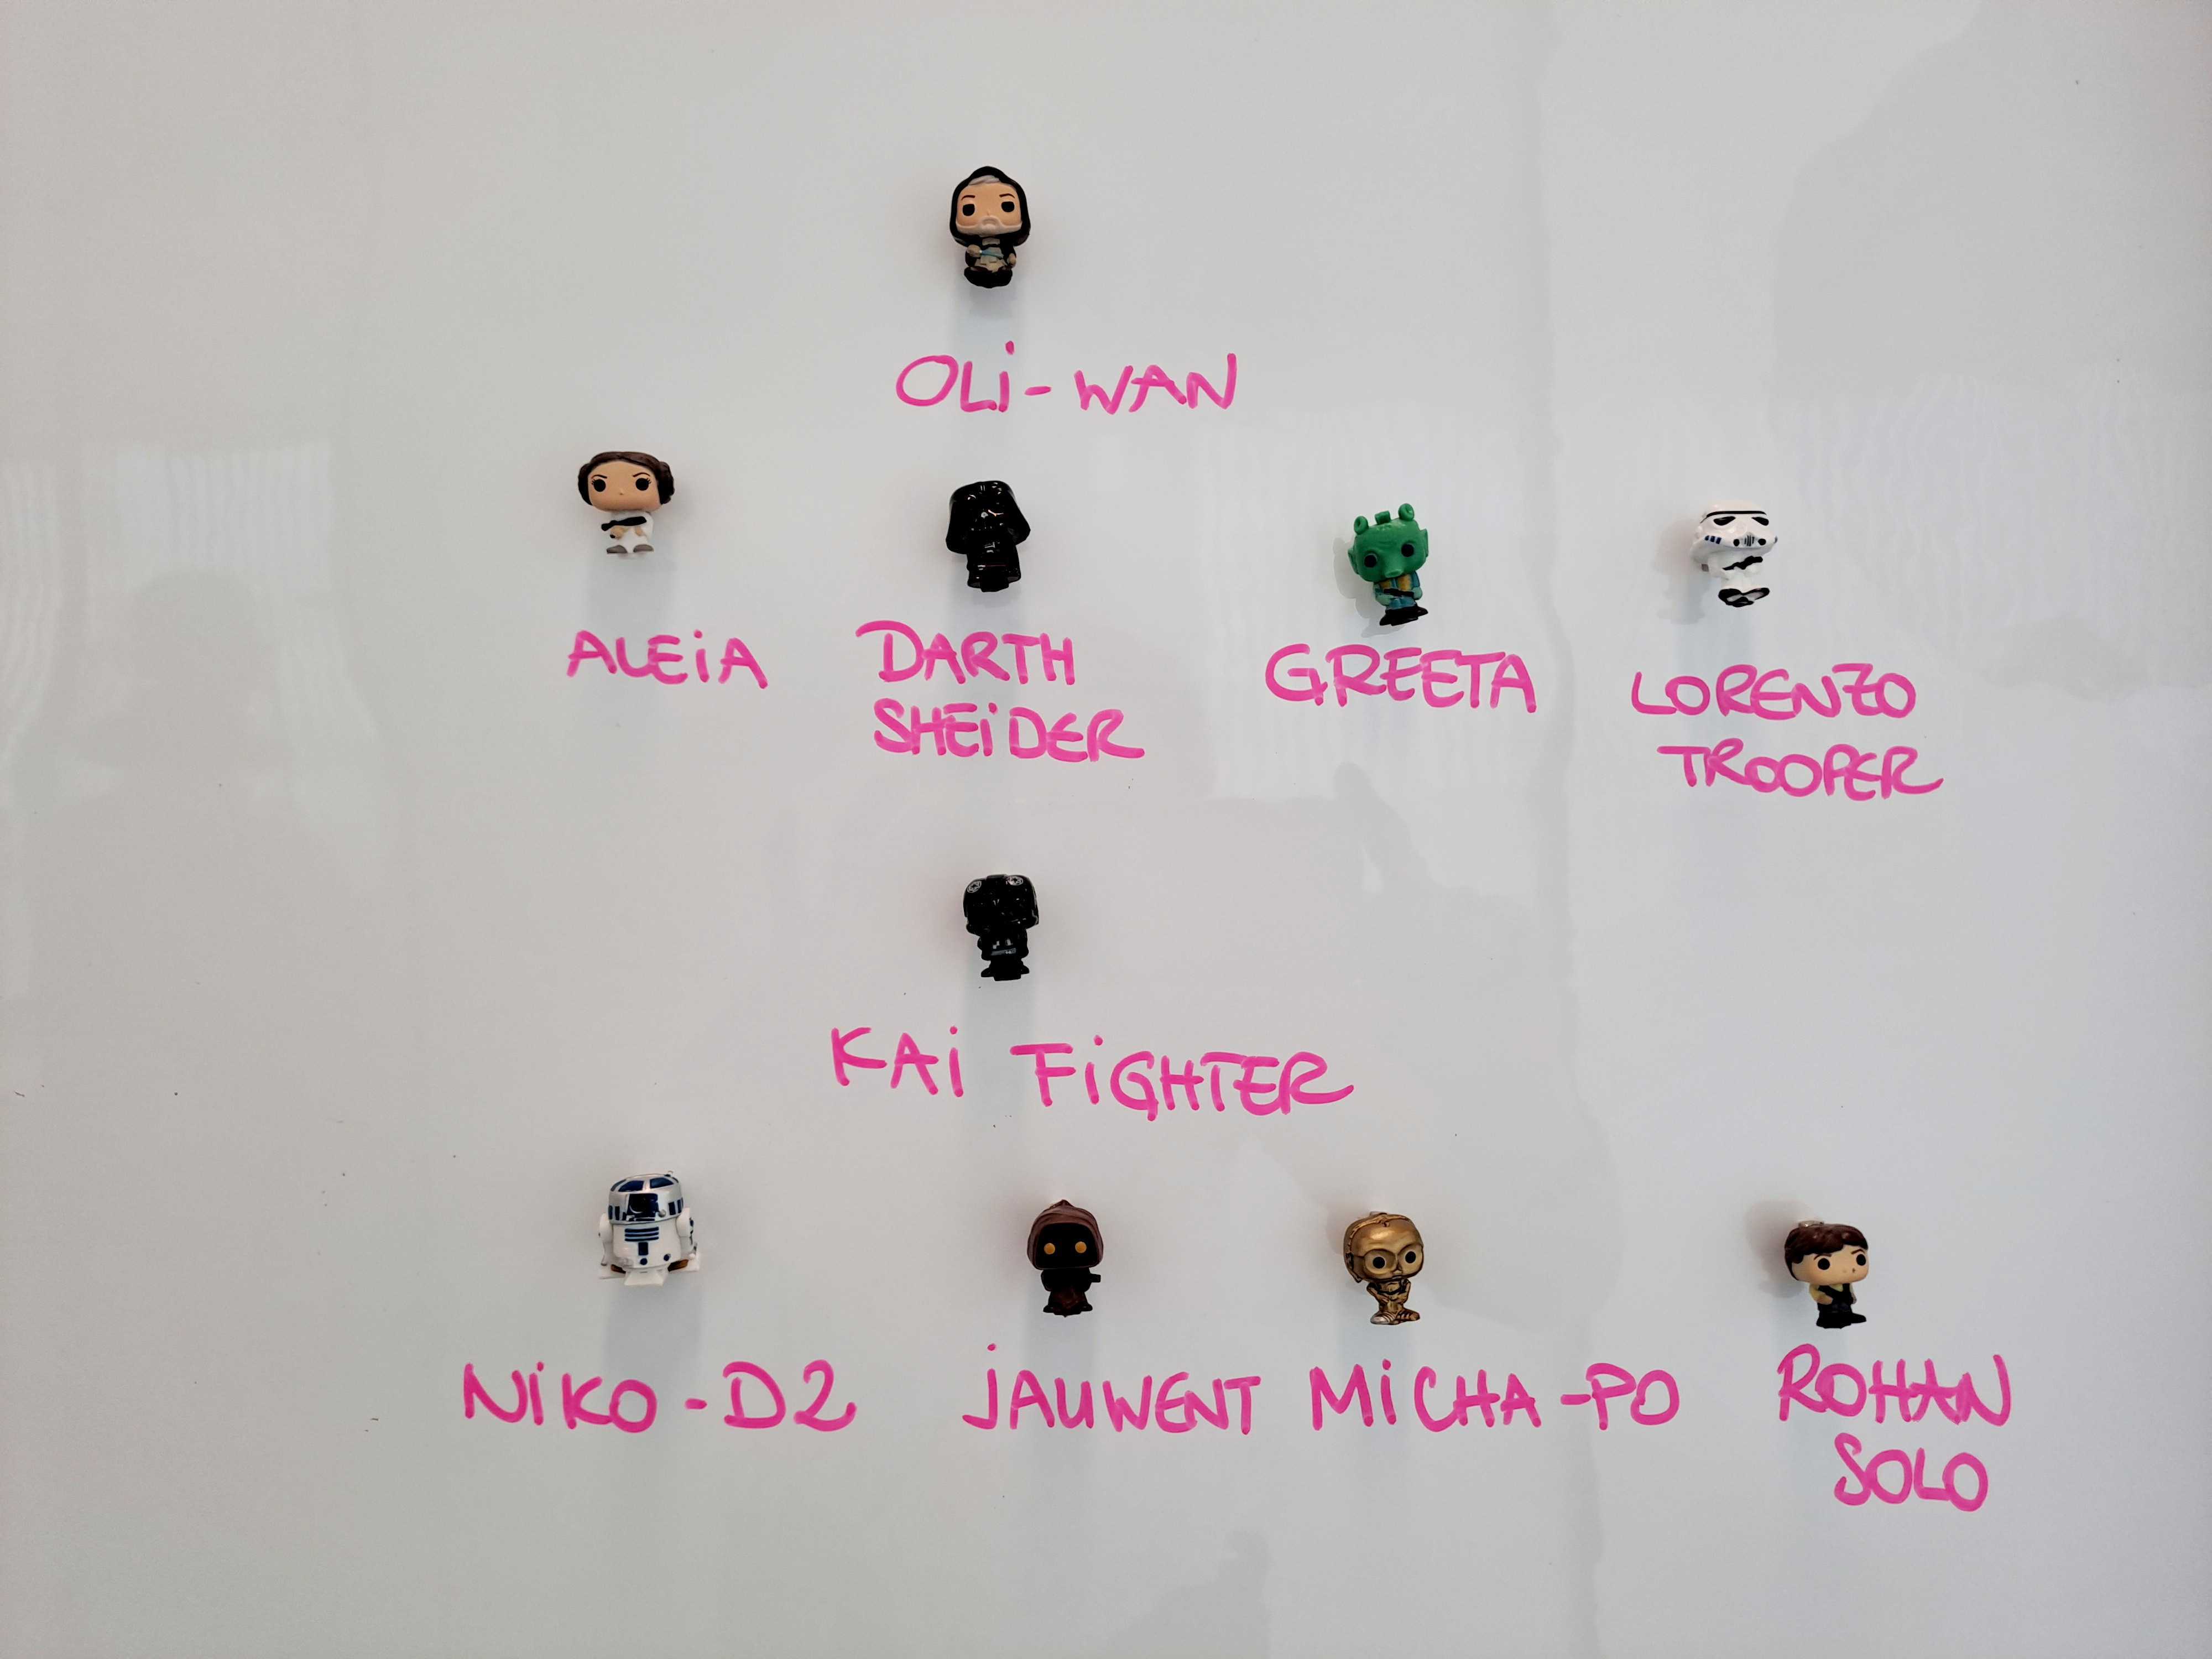 OLi-WAN
ALEiA
DARTH
SHEiDER
GREETA
LORENZO
TROOPER
KAi FiGHTER
NiKO-D2
jAUWENT
MiCHA-PO
ROHAN
SOLO